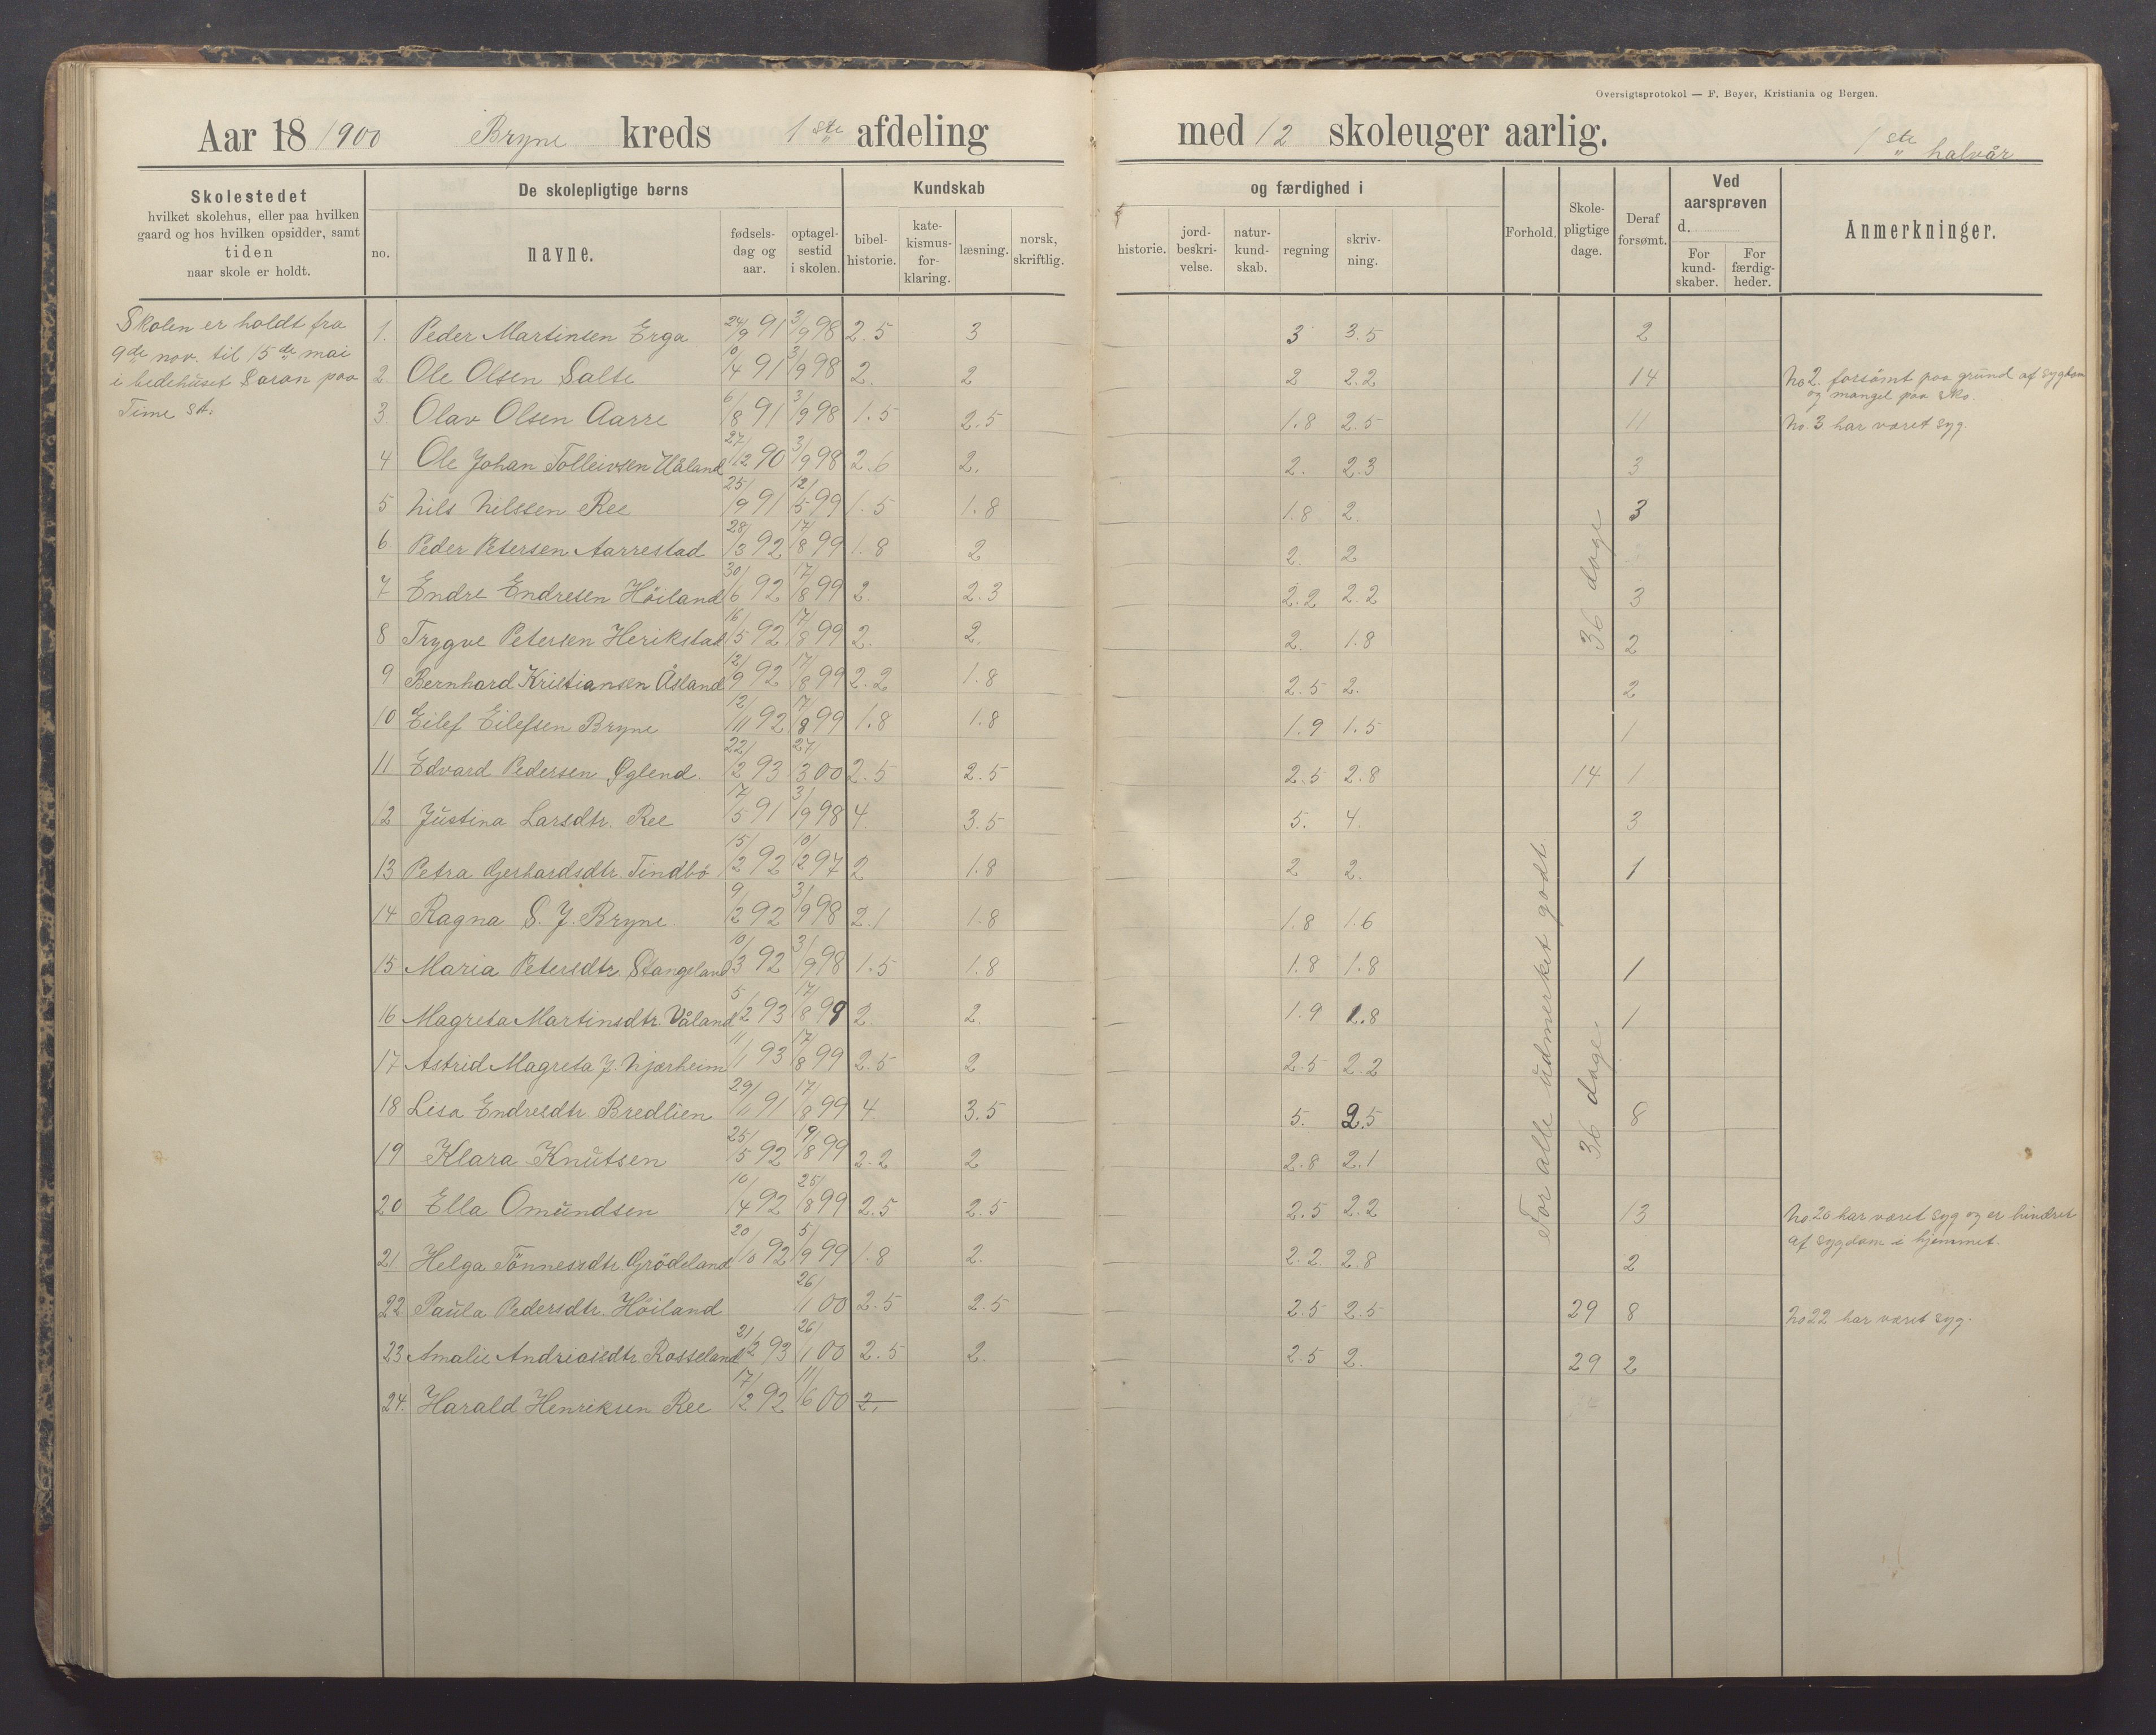 Oversigtsprotokol — F. Beyer, Kristiania og Bergen.
Aar 18/1900 Bryne kreds 1ste afdeling med 12 skoleuger aarlig. 1ste halvår
Skolestedet hvilket skolehus, eller paa hvilken gaard og hos hvilken opsidder, samt tiden naar skole er holdt.
De skolepligtige børns
no. navne. fødsels-dag og aar. optagel-sestid i skolen.
Kundskab og færdighed i
bibel-historie. kate-kismus-for-klaring. læsning. norsk, skriftlig. historie. jord-beskri-velse. natur-kund-skab. regning skriv-ning.
Forhold. Skole-pligtige dage. Deraf forsømt.
Ved aarsprøven d. For kund-skaber. For færdig-heder.
Anmerkninger.
Skolen er holdt fra
9de nov. til 15de mai
i bedehuset Saron paa
Time st.
1. Peder Martinsen Erga 24/9 91 3/9 98 2.5 3 3 3.5 2
2. Ole Olsen Salte 10/4 91 3/9 98 2. 2 2 2.2 14 No 2. forsømt paa grund af sygdom
og mangel paa sko.
3. Olav Olsen Aarre 6/8 91 3/9 98 1.5 2.5 1.8 2.5 11 No. 3 har været syg.
4 Ole Johan Tolleivsen Håland 27/12 90 3/9 98 2.6 2. 2. 2.3 3
5 Nils Nilssen Ree 25/9 91 12/5 99 1.5 1.8 1.8 2. 3
6 Peder Petersen Aarrestad 28/3 92 17/8 99 1.8 2 2. 2
7 Endre Endresen Höiland 30/6 92 17/8 99 2 2.3 2.2 2.2 3
8 Trygve Petersen Herikstad 16/5 92 17/8 99 2. 2. 2. 1.8 2
9 Bernhard Kristiansen Åsland 12/9 92 17/8 99 2.2 1.8 2.5 2. 2
10 Eilef Eilefsen Bryne 12/11 92 17/8 99 1.8 1.8 1.9 1.5 1
11 Edvard Pedersen Öglend. 22/2 93 27/3 00 2.5 2.5 2.5 2.8 14 1
12 Justina Larsdtr. Ree 17/5 91 3/9 98 4. 3.5 5. 4. 3
13 Petra Gerhardsdtr. Tindbö 15/2 92 10/12 97 2 1.8 2 2. 1
14 Ragna S. J. Bryne. 9/2 92 3/9 98 2.1 1.8 1.8 1.6
15 Maria Petersdtr. Stangeland 10/3 92 3/9 98 1.5 1.8 1.8 1.8 1
16 Magreta Martinsdtr. Våland 5/2 93 17/8 99 2. 2. 1.9 1.8 1
17 Astrid Magreta J. Njærheim 11/1 93 17/8 99 2.5 2 2.5 2.2
18 Lisa Endresdtr. Bredlien 29/11 91 17/8 99 4. 3.5 5. 2.5 8
19 Klara Knutsen 25/5 92 19/8 99 2.2 2 2.8 2.1
20 Ella Omundsen 10/4 92 25/8 99 2.5 2.5 2.5 2.2 13 No 20 har været syg og er hindret
af sygdom i hjemmet.
21 Helga Tönnessdtr. Grödeland 20/10 92 5/9 99 1.8 2. 2.2. 2.8 2
22 Paula Pedersdtr. Höiland 26/1 00 2.5 2.5 2.5 2.5 29 8 No 22 har været syg.
23 Amalie Andreasdtr. Rosseland 21/2 93 26/1 00 2.5 2. 2.5 2. 29 2
24. Harald Henriksen Ree 17/2 92 11/6 00 2.
For alle udmerket godt.
36 dage
36 dage